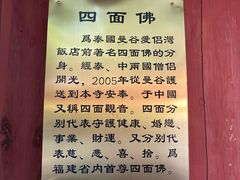 四面佛
為泰國曼谷愛侶灣
飯店前著名四面佛的分
身。經泰、中兩國僧侶
開光，2005年從曼谷護
送到本寺安奉。于中國
又稱四面觀音。四面分
别代表守護健康、婚戀、
事業、財運。又分别代
表慈、悲、喜、捨。爲
福建省内首尊四面佛。